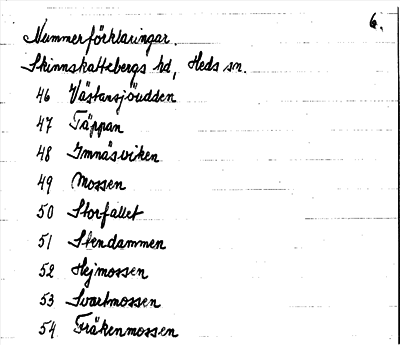 6.
Nummerförklaringar.
Skinnskattebergs hd, Heds sn.
46 Västansjöudden
47 Täppan
48 Imnäsviken
49 Mossen
50 Storfallet
51 Stendammen
52 Hejmossen
53 Svartmossen
54 Fräkenmossen